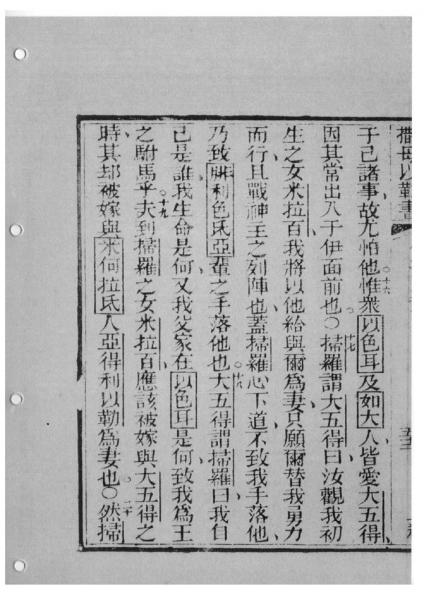 撒母以勒書
于己諸事故尤怕他十六惟衆以色耳及如大人皆愛大五得
因其常出入于伊面前也○十七掃羅謂大五得曰汝觀我初
生之女米拉百我將以他給與爾爲妻只願爾替我勇力
而行且戰神王之列陣也蓋掃羅心下道不致我手落他
乃致啡利色氏亞輩之手落他也十八大五得謂掃羅曰我自
己是誰我生命是何又我父家在以色耳是何致我爲王
之駙馬乎十九夫到掃羅之女米拉百應該被嫁與大五得之
時其却被嫁與米何拉氏人亞得利以勒爲妻也○二十然掃